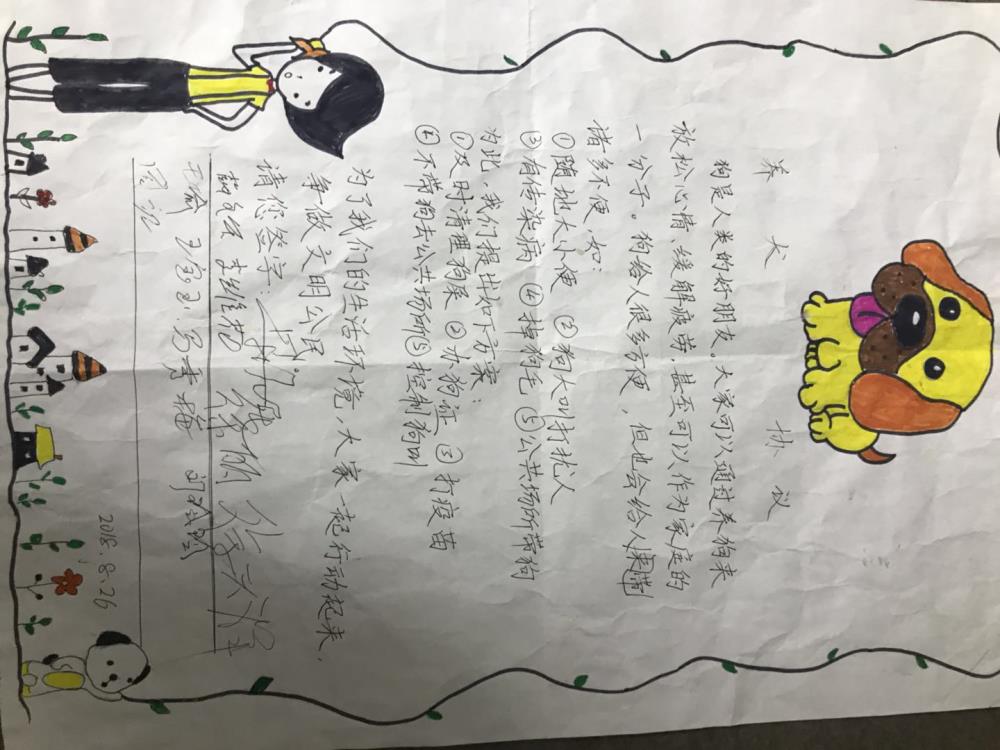 养 犬 协 议
狗是人类的好朋友。大家可以通过养狗来
放松心情,缓解疲劳,甚至可以作为家庭的
一分子。狗给人很多方便,但也会给人带
诸多不便,如:
①随地大小便 ②狗大叫打扰人
③有传染病 ④掉狗毛 ⑤公共场所带狗
为此,我们提出如下方案:
①及时清理狗屎 ②办狗证 ③打疫苗
④不带狗去公共场所⑤控制狗叫
为了我们的生活环境,大家一起行动起来,
争做文明公民
请您签字:
2018.8.26